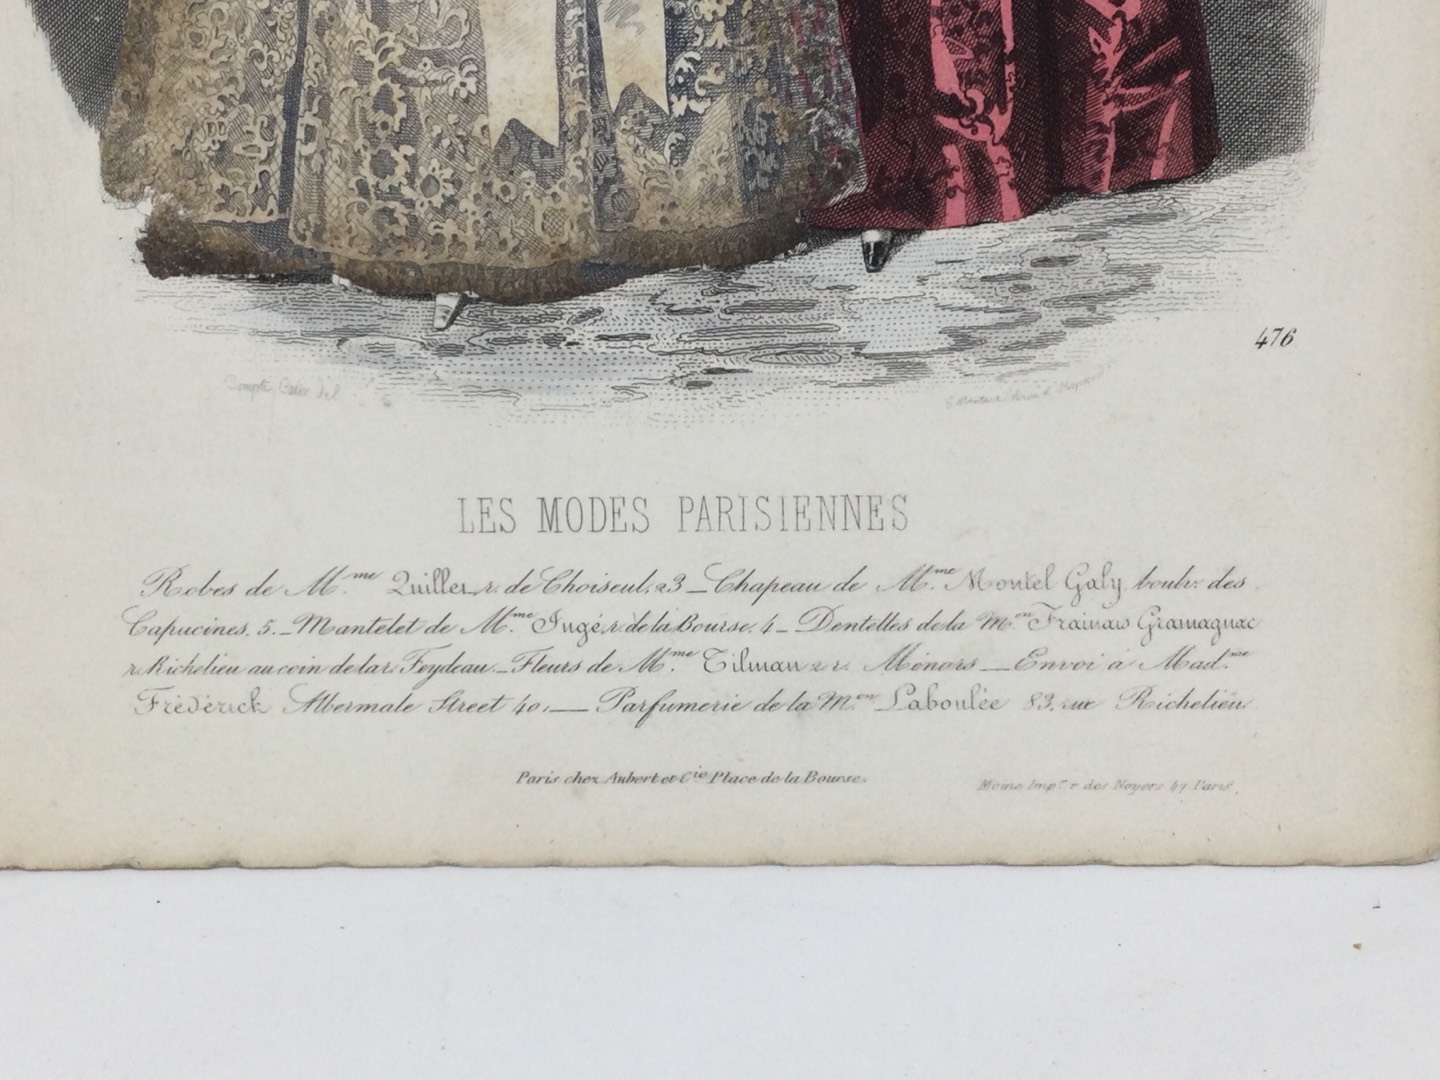 476
Compte Calix del
LES MODES PARISIENNES
Robes de M.me Quillet r. de Choiseul, 23 _ Chapeau de M.me Montel Galy boulv. des
Capucines, 5._ Mantelet de M.me Jugé, r. de la Bourse, 4 _ Dentelles de la M.on Frainais Gramagnac
r. Richelieu au coin de la r. Feydeau._ Fleurs de M.me Tilman 2 r. Ménars _ Envoi à Mad.me
Fréderick Albermale Street 40, _ Parfumerie de la M.on Laboulée 83, rue Richelieu
Paris chez Aubert et Cie Place de la Bourse.
Moine Imp.r r. des Noyers 47 Paris.